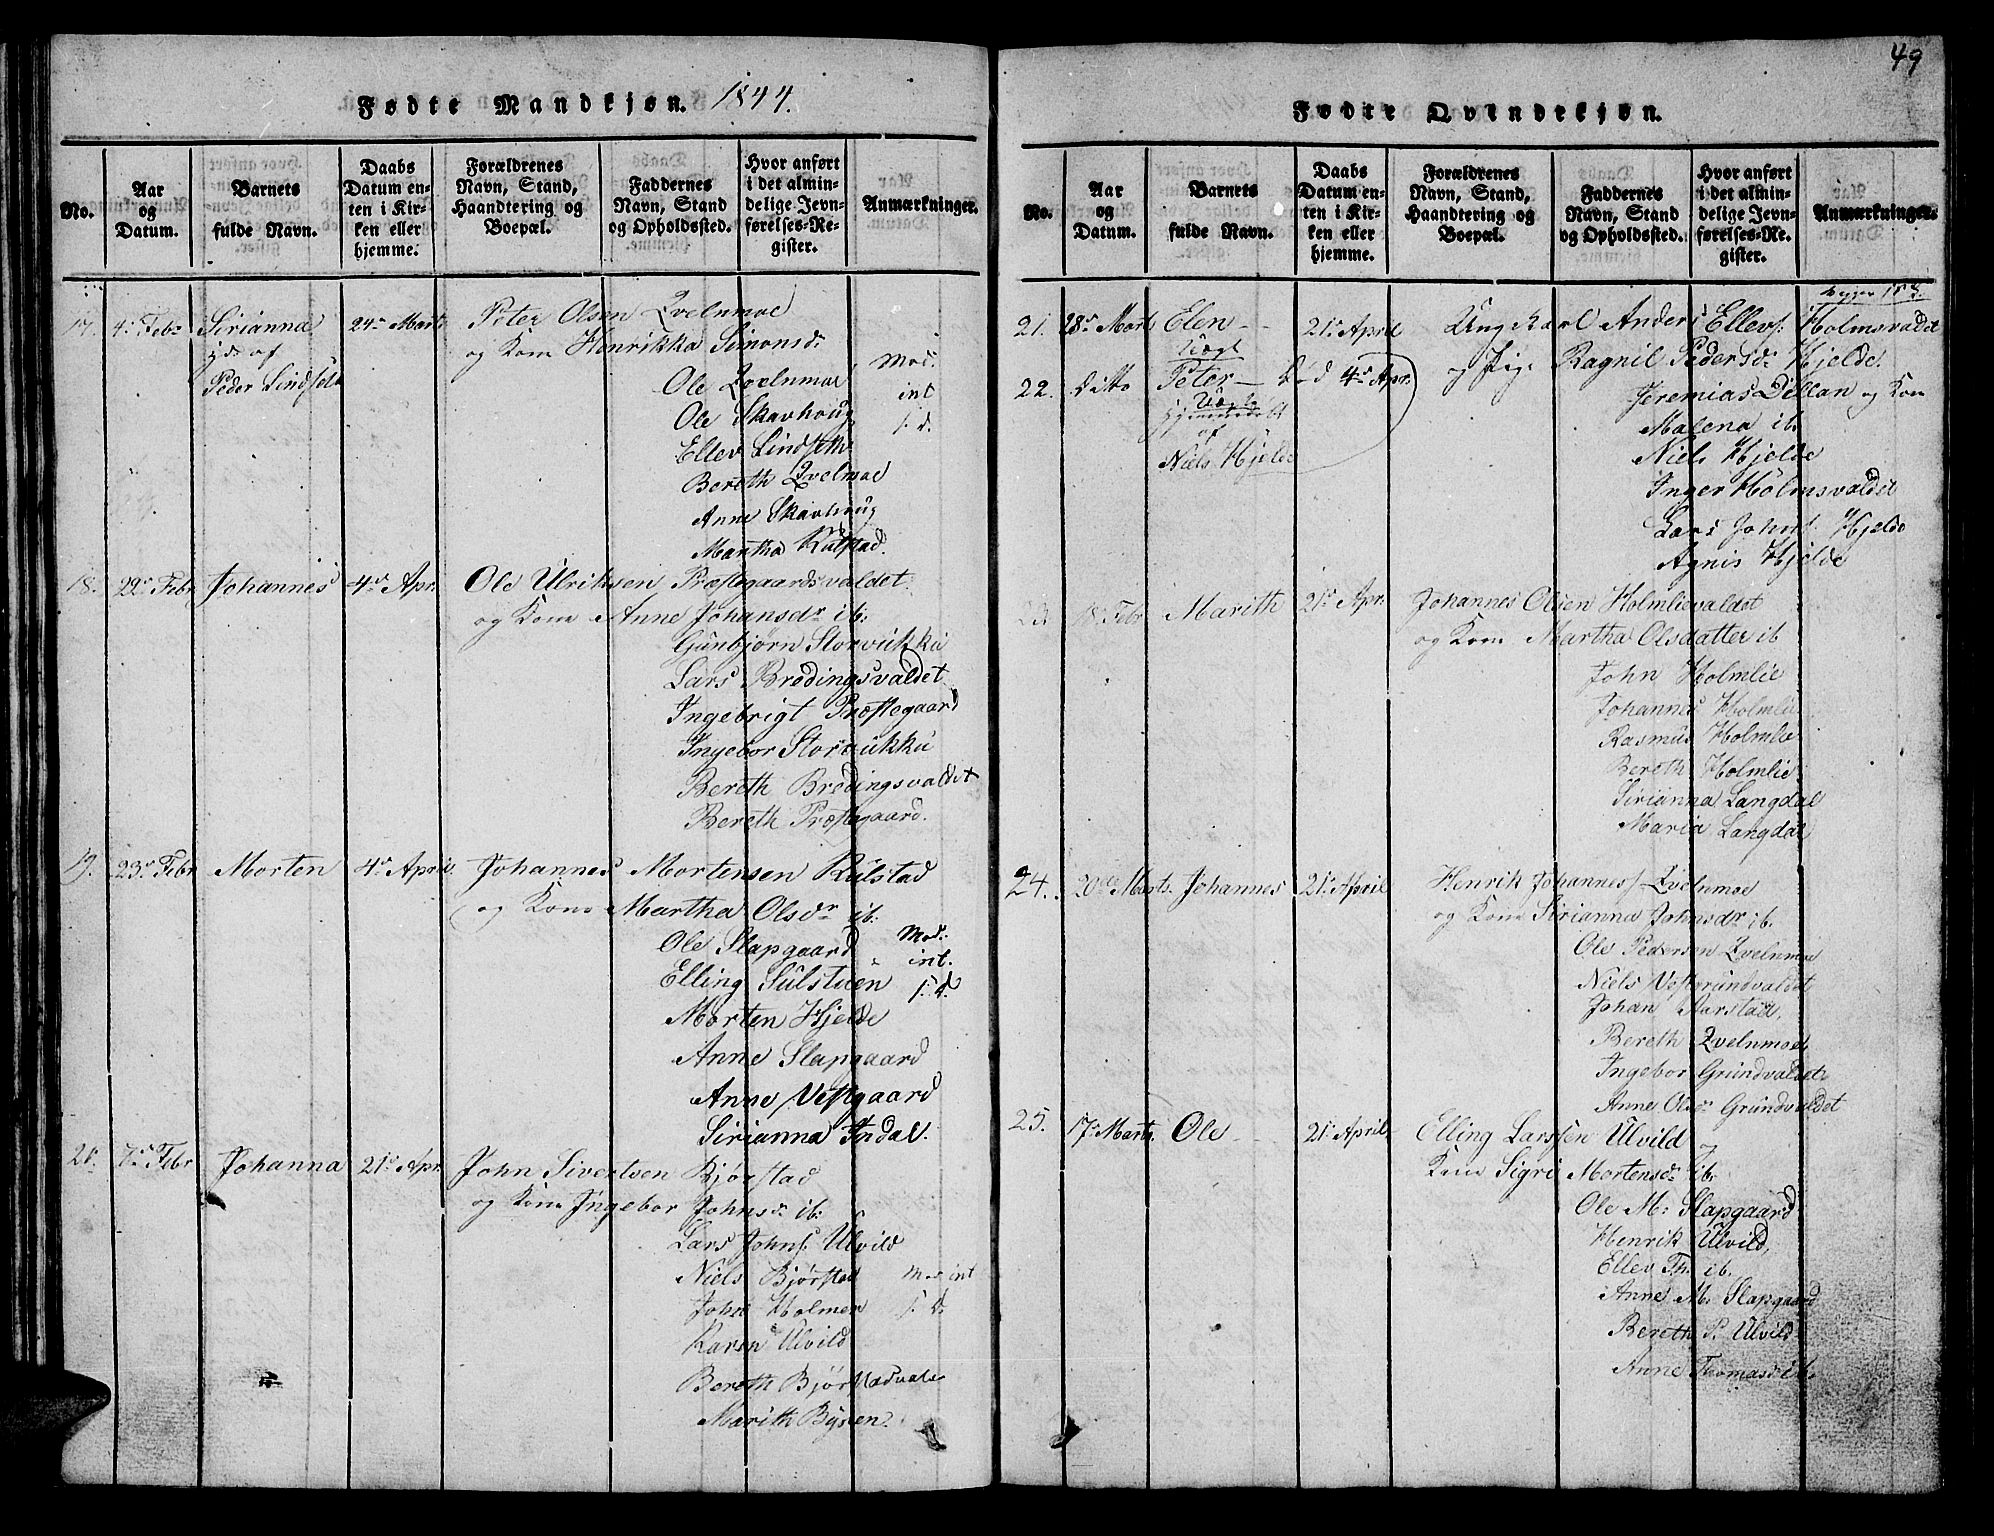 Fødte Mandkjøn. 1844.
No. Aar og Datum. Barnets fulde Navn. Daabs Datum enten i Kirken eller hjemme. Forældrenes Navn, Stand, Haandtering og Boepæl. Faddernes Navn, Stand og Opholdssted. Hvor anført i det almindelige Jevnførelses-Register. Anmærkninger.
17. 4de Febr Sirianna 24de Marts Peter Olsen Qvelnmoe
hjd. af og Kone Henrikka Simonsd:
Peder Lindseth
Ole Qvelnmoe Mod:
Ole Skavhoug int
Ellev Lindseth s. d.
Bereth Qvelmoe
Anne Skavhoug
Martha Kulstad.
18. 22de Febr Johannes 4de Apr. Ole Ulriksen Præstegaardsvaldet
og Kone Anne Johansdr ib:
Gunbjørn Storvukku
Lars Bredingsvaldet
Ingebrigt Præstegaard
Ingebor Storvukku
Bereth Bredingsvaldet
Bereth Præstegaard.
19. 23de Febr Morten 4de April. Johannes Mortensen Kulstad
og Kone Martha Olsdr ib.
Ole Slapgaard Mod:
Elling Sulstuen int.
Morten Hjelde s. d.
Anne Slapgaard
Anne Vestgaard
Sirianna Indal.
20. 7de Febr Johanna 21de Apr. John Sivertsen Bjørstad
og Kone Ingebor Johnsd: ib:
Lars Johns. Ulvild
Niels Bjørstad Mod int
John Holmen s. d.
Karen Ulvild
Bereth Bjørstadvald
Marith Bynen.
49
Fødte Qvindekjøn.
No. Aar og Datum. Barnets fulde Navn. Daabs Datum enten i Kirken eller hjemme. Forældrenes Navn, Stand, Haandtering og Boepæl. Faddernes Navn, Stand og Opholdssted. Hvor anført i det almindelige Jevnførelses-Register. Anmærkninger.
21. 28de Mart Elen 21de April Ungkarl Anders Ellevs: Holmsvaldet
Uægt og Pige Ragnil Pedersd: Hjelde.
22. Ditto Peter Død 4de Apr.
Uægte
hjemmedøbt
af
Niels Hjelde
Jeremias Dillan og Kone
Malena ib.
Niels Hjelde
Inger Holmsvaldet
Lars Johns. Hjelde
Agnis Hjelde
23 18de Febr Marith 21de Apr. Johannes Olsen Holmlievaldet
og Kone Martha Olsdatter ib
John Holmlie
Johannes Holmlie
Rasmus Holmlie
Bereth Holmlie
Sirianna Langdal
Maria Langdal
24. 20de Marts. Johannes 21de April Henrik Johanness. Qvelnmoe
og Kone Sirianna Johnsdr ib.
Ole Pedersen Qvelnmoe
Niels Vestgrundvaldet
Johan Aarstad.
Bereth Qvelnmoe
Ingebor Grundvaldet
Anne Olsdr Grundvaldet
25. 17de Marts. Ole 21de April. Elling Larssen Ulvild og
Kone Sigri Mortensdr ib.
Ole M: Slapgaard
Henrik Ulvild,
Ellev Th. ib.
Anne M: Slapgaard
Bereth P. Ulvild
Anne Thomasd ib.